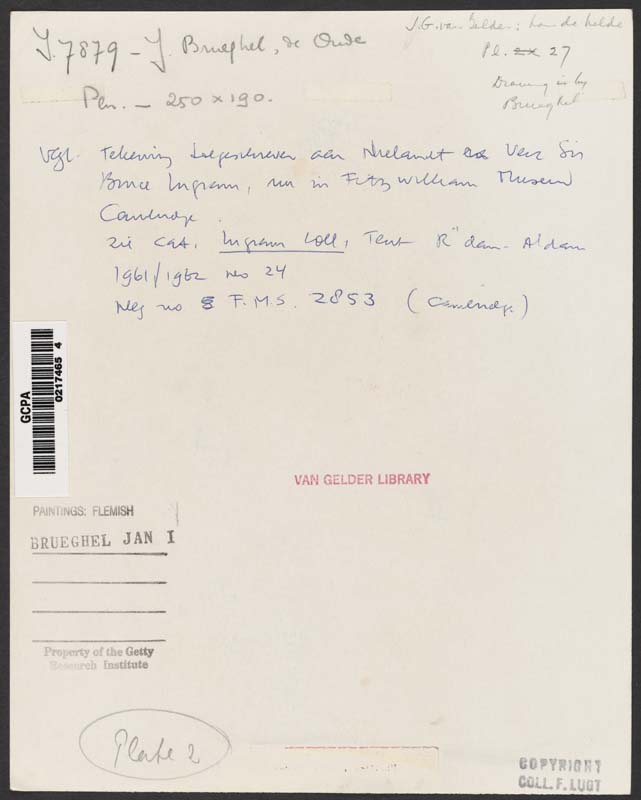 J. 7879 - J. Brueghel, de Oude
J.G. van Gelder: Jan v. de Velde
Pl. 27
Drawing is by
Brueghel
Pen. - 250 x 190.
Vgl. tekening toegeschreven aan Nieulandt Verz Sir
Bruce Ingram, nu in Fitzwilliam Museum
Cambridge.
Zie cat. Ingram Coll, Tent R'dam - A'dam
1961/1962 no 24
Neg no F.M.S. 2853 (Cambridge)
GCPA
0217465 4
VAN GELDER LIBRARY
PAINTINGS: FLEMISH
BRUEGHEL JAN I
Property of the Getty
Research Institute
Plate 2
COPYRIGHT
COLL. F. LUGT